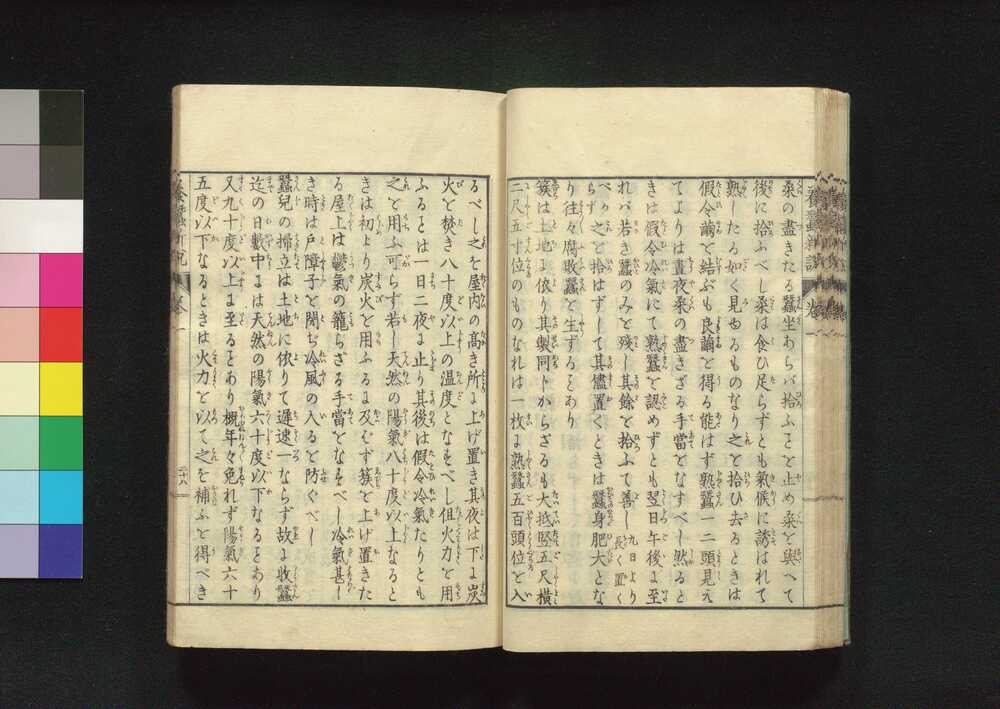 桑の盡きたる蠶坐あらバ拾ふことを止め桑を與へて
後に拾ふべし桑は食ひ足らずとも氣候に誘はれて
熟したる如く見ゆるものなり之を拾ひ去るときは
假令繭を結ぶも良繭を得る能はず熟蠶一二頭見え
てよりは晝夜桑の盡きざる手當をなすべし然ると
きは假令冷氣にて熟蠶を認めずとも翌日午後に至
れバ若き蠶のみを殘し其餘を拾ふて善し九日より長く置く
べからず之を拾はずして其儘置くときは蠶身肥大とな
り往々腐敗蠶を生ずることあり
簇は土地に依り其製同トからざるも大抵竪五尺橫
二尺五寸位のものなれは一枚に熟蠶五百頭位を入
るべし之を屋内の高き所に上げ置き其夜は下に炭
火を焚き八十度以上の温度となすべし但火力を用
ふるとは一日二夜に止り其後は假令冷氣たりとも
之を用ふ可らず若し天然の陽氣八十度以上なると
きは初より炭火を用ふるに及むず簇を上げ置きた
る屋上は鬱氣の籠らざる手當をなすべし冷氣甚し
き時は戸障子を閉ぢ冷風の入るを防ぐべし
蠶兒の掃立は土地に依りて遲速一ならず故に收蠶
迄の日數中には天然の陽氣六十度以下なることあり
又九十度以上に至ることあり概年々免れず陽氣六十
五度以下なるときは火力を以て之を補ふを得べき
卷一
二十八